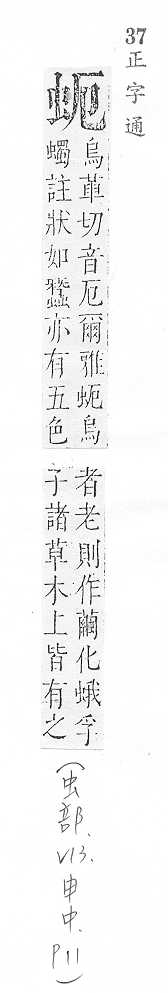 37 正字通
蚅
烏革切音厄爾雅蚅烏
蠋註狀如蠶亦有五色
者老則作繭化蛾孚
子諸草木上皆有之
(虫部. V13. 申中. P11)